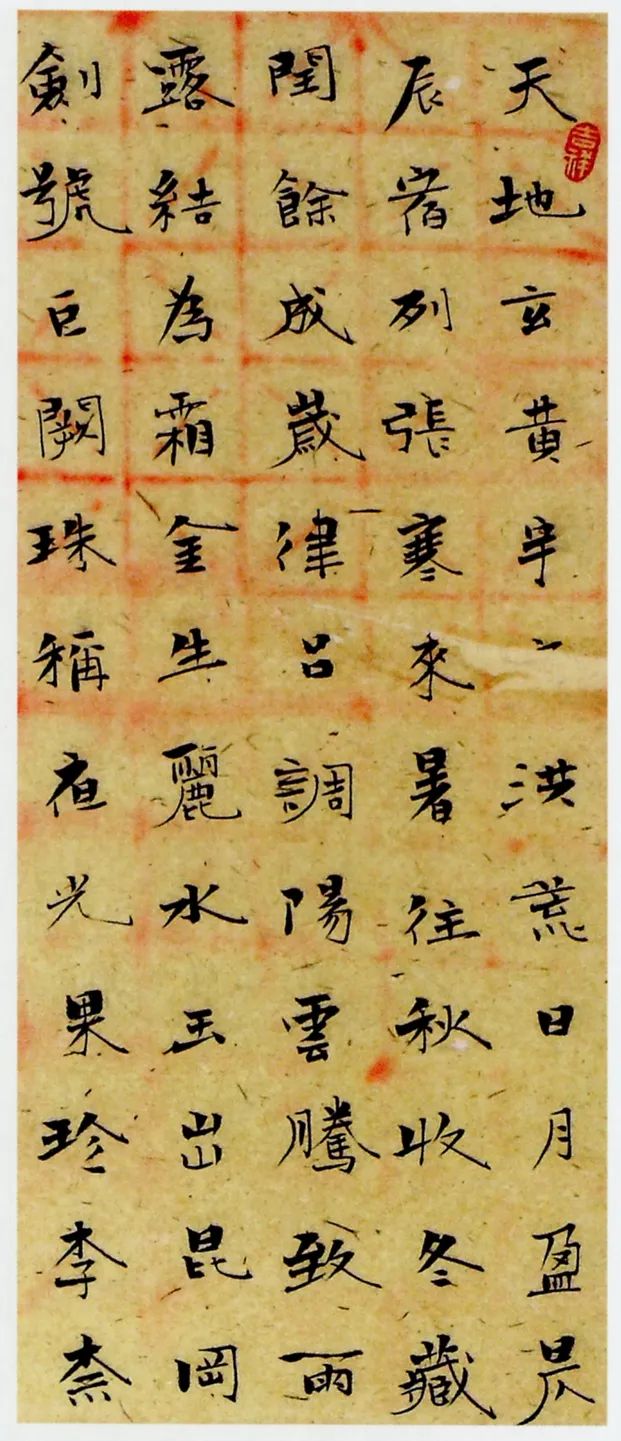 天地玄黄宇〻洪荒日月盈昃
辰宿列張寒來暑往秋收冬藏
閏餘成歲律呂調陽雲騰致雨
露結為霜金生麗水玉出昆岡
劍號巨闕珠稱夜光果珍李柰
吉祥